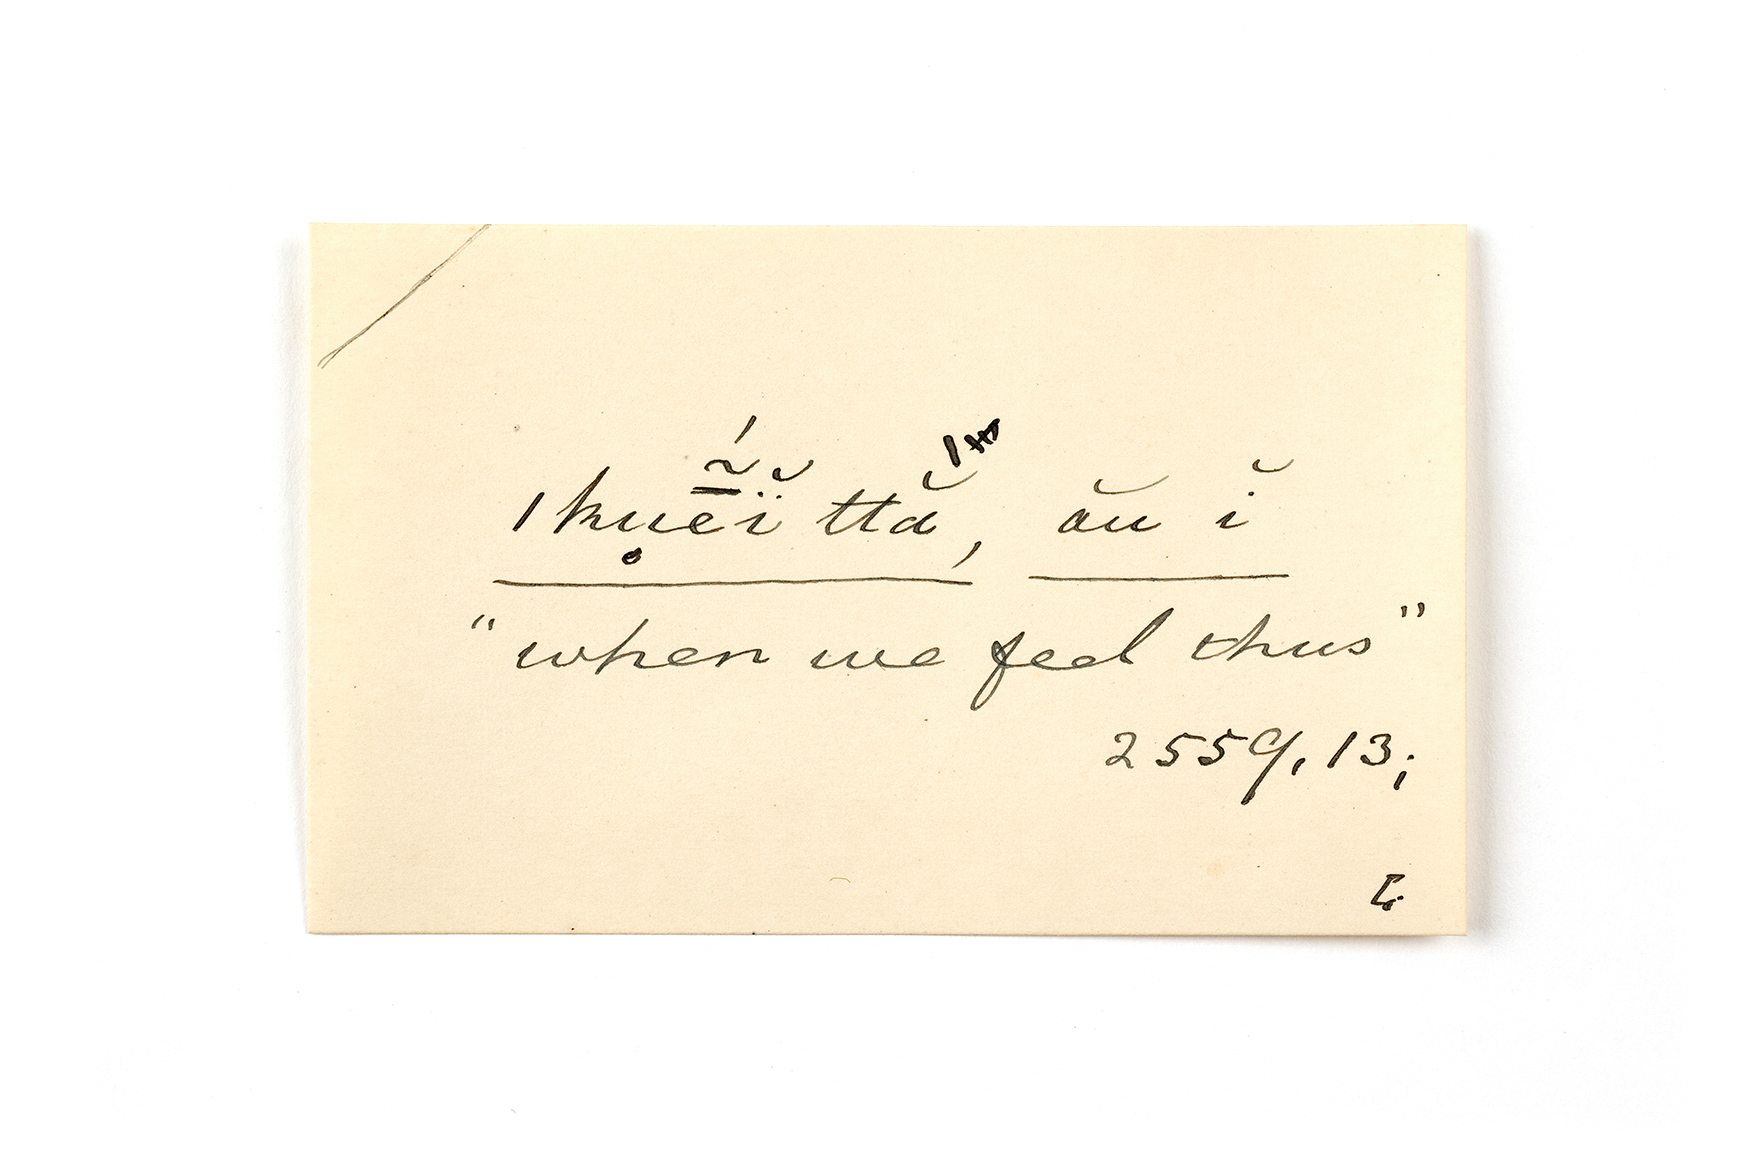 ǀkụḗ̃ï̆ ttă, ău ĭ
"when we feel thus"
2559, 13;
L.